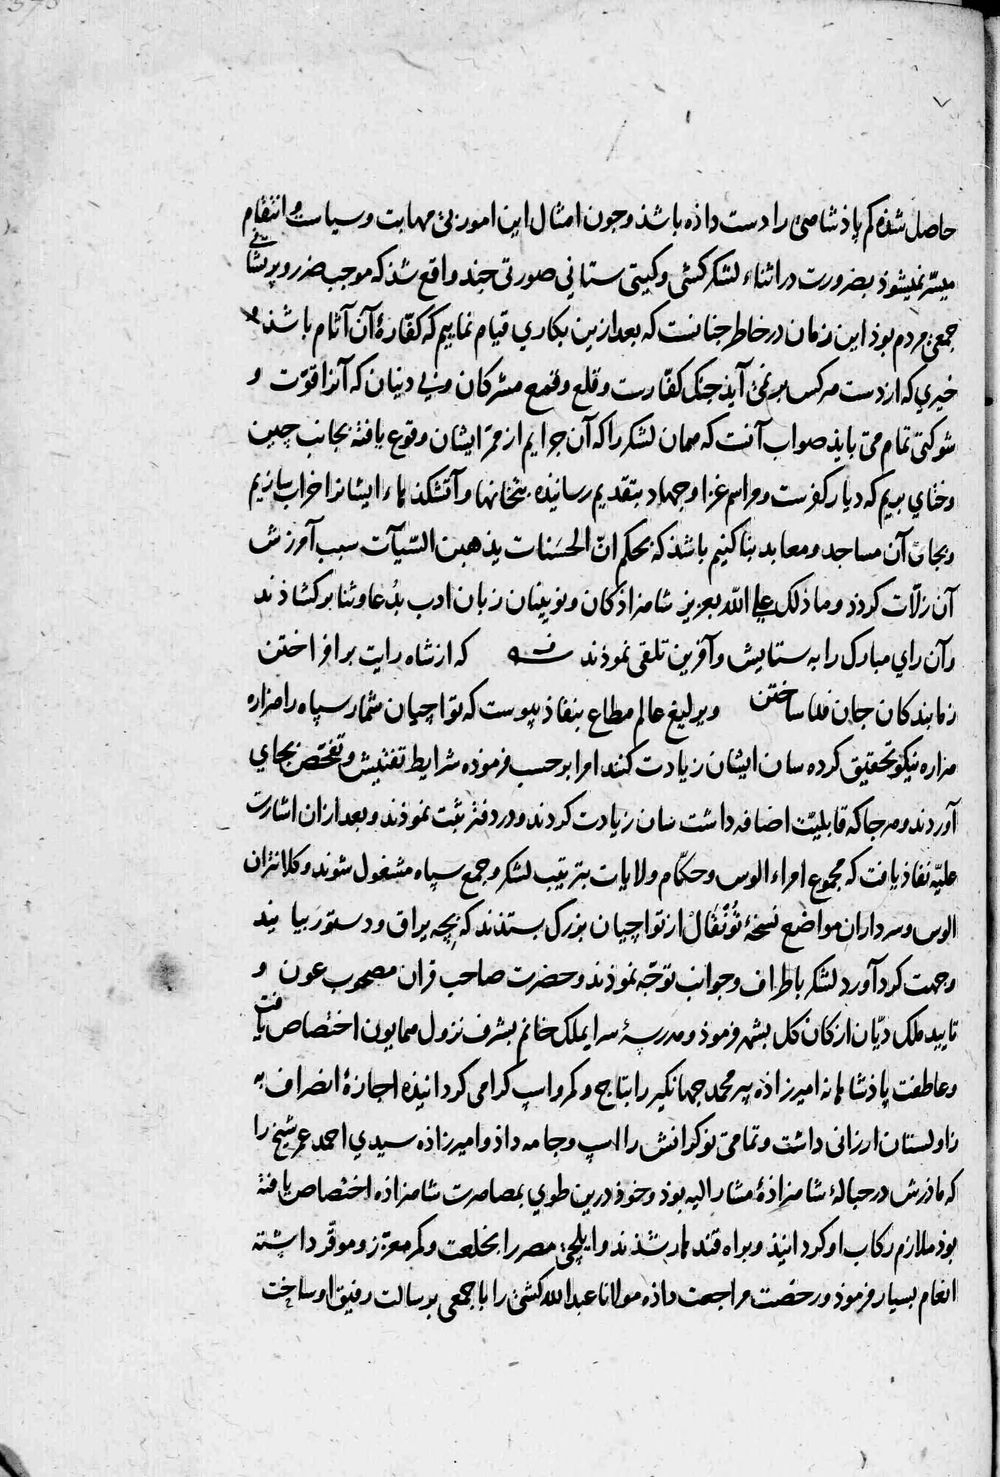 حاصل شذه کم پاذشاهی را دست داذه باشذ و چون امثال این امور بی مهابت و سیاست و انتقام
میسّر نمیشوذ بضرورت در اثناء لشکر کشی و کیتی ستانی صورتی چند واقع شذ که موجب ضرر و پریشانی
جمعی مردم بوذ این زمان در خاطر چنانست که بعد ازین بکاری قیام نماییم که کفّارهٔ آن آثام باشذ و
خیری که از دست هرکس بر نمی آیذ جنک کفّارست و قلع و قمع مشرکان و بی دینان که آنرا قوّت و
شوکتی تمام می بایذ صواب آنست که همان لشکر را که آن جرایم از ممرّ ایشان وقوع یافته بجانب چین
و ختای بریم که دیار کفرست و مراسم غزا و جهاد بتقدیم رسانیذه بتخانها و آتشکذهاء ایشانرا خراب سازیم
و بجای آن مساجد و معابد بنا کنیم باشذ که بحکم انّ الحسَنات یذهبن السّیآت سبب آمرزش
آن زلّات کردذ و ما ذلک علی الله بعزیز شاهزاذکان و نویینان زبان ادب بدُعا و ثنا بر کشاذند
و آن رای مبارک را به ستایش و آفرین تلقی نموذند که از شاه رایت بر افراختن
ز ما بندکان جان فدا ساختن و یرلیغ عالم مطاع بنفاذ پیوست که تواچیان شمار سپاه را هزاره
هزاره نیکو تحقیق کرده سان ایشان زیادت کنند امرا بر حسب فرموذه شرایط تفتیش و تفحّص بجای
آوردند و هر جا که قابلیّت اضافه داشت سان زیادت کردند و در دفتر ثبت نموذند و بعد از ان اشارت
علیّه نفاذ یافت که مجموع امراء الوس و حکّام ولایات بترتیب لشکر و جمع سپاه مشغول شوند و کلانتران
الوس و سرداران مواضع نسخهٔ تُونْقال از تواچیان بزرک بستذند که بچه یراق و دستور بیایند
و جهت کرد آورد لشکر باطراف و جوانب توجّه نموذند و حضرت صاحب قران مصحوب عون و
تایید ملک دیّان از کان کل بشهر فرموذ و مدرسهٔ سرایملک خانم بشرف نزول همایون اختصاص یافت
و عاطفت پاذشاهانه امیرزاذه پیر محمد جهانکیر را بتاج و کمر و اسپ کرامی کردانیذه اجازهٔ انصراف به
زاولستان ارزانی داشت و تمامی نوکرانش را اسپ و جامه داذ و امیرزاذه سیدی احمد عمر شیخ را
که ماذرش در حبالهٔ شاهزاذهٔ مشار الیه بوذ و خوذ درین طوی بمصاهرت شاهزاذه اختصاص یافته
بوذ ملازم رکاب او کردانیذ و براه قندهار شذند و ایلچی مصر را بخلعت و کمر معزّز و موقّر داشته
انعام بسیار فرموذ و رخصت مراجعت داذه مولانا عبدالله کشی را با جمعی برسالت رفیق او ساخت